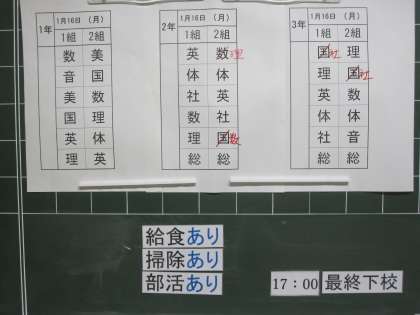 1年
1月16日 (月)
1組 2組
数 美
音 国
美 数
国 理
英 体
理 英
2年
1月16日 (月)
1組 2組
英 数 理
体 体
社 英
数 社
理 国 数
総 総
3年
1月16日 (月)
1組 2組
国 社 理
理 国 社
数 英
体 体
社 音
総 総
給食あり
掃除あり
部活あり
17:00 最終下校